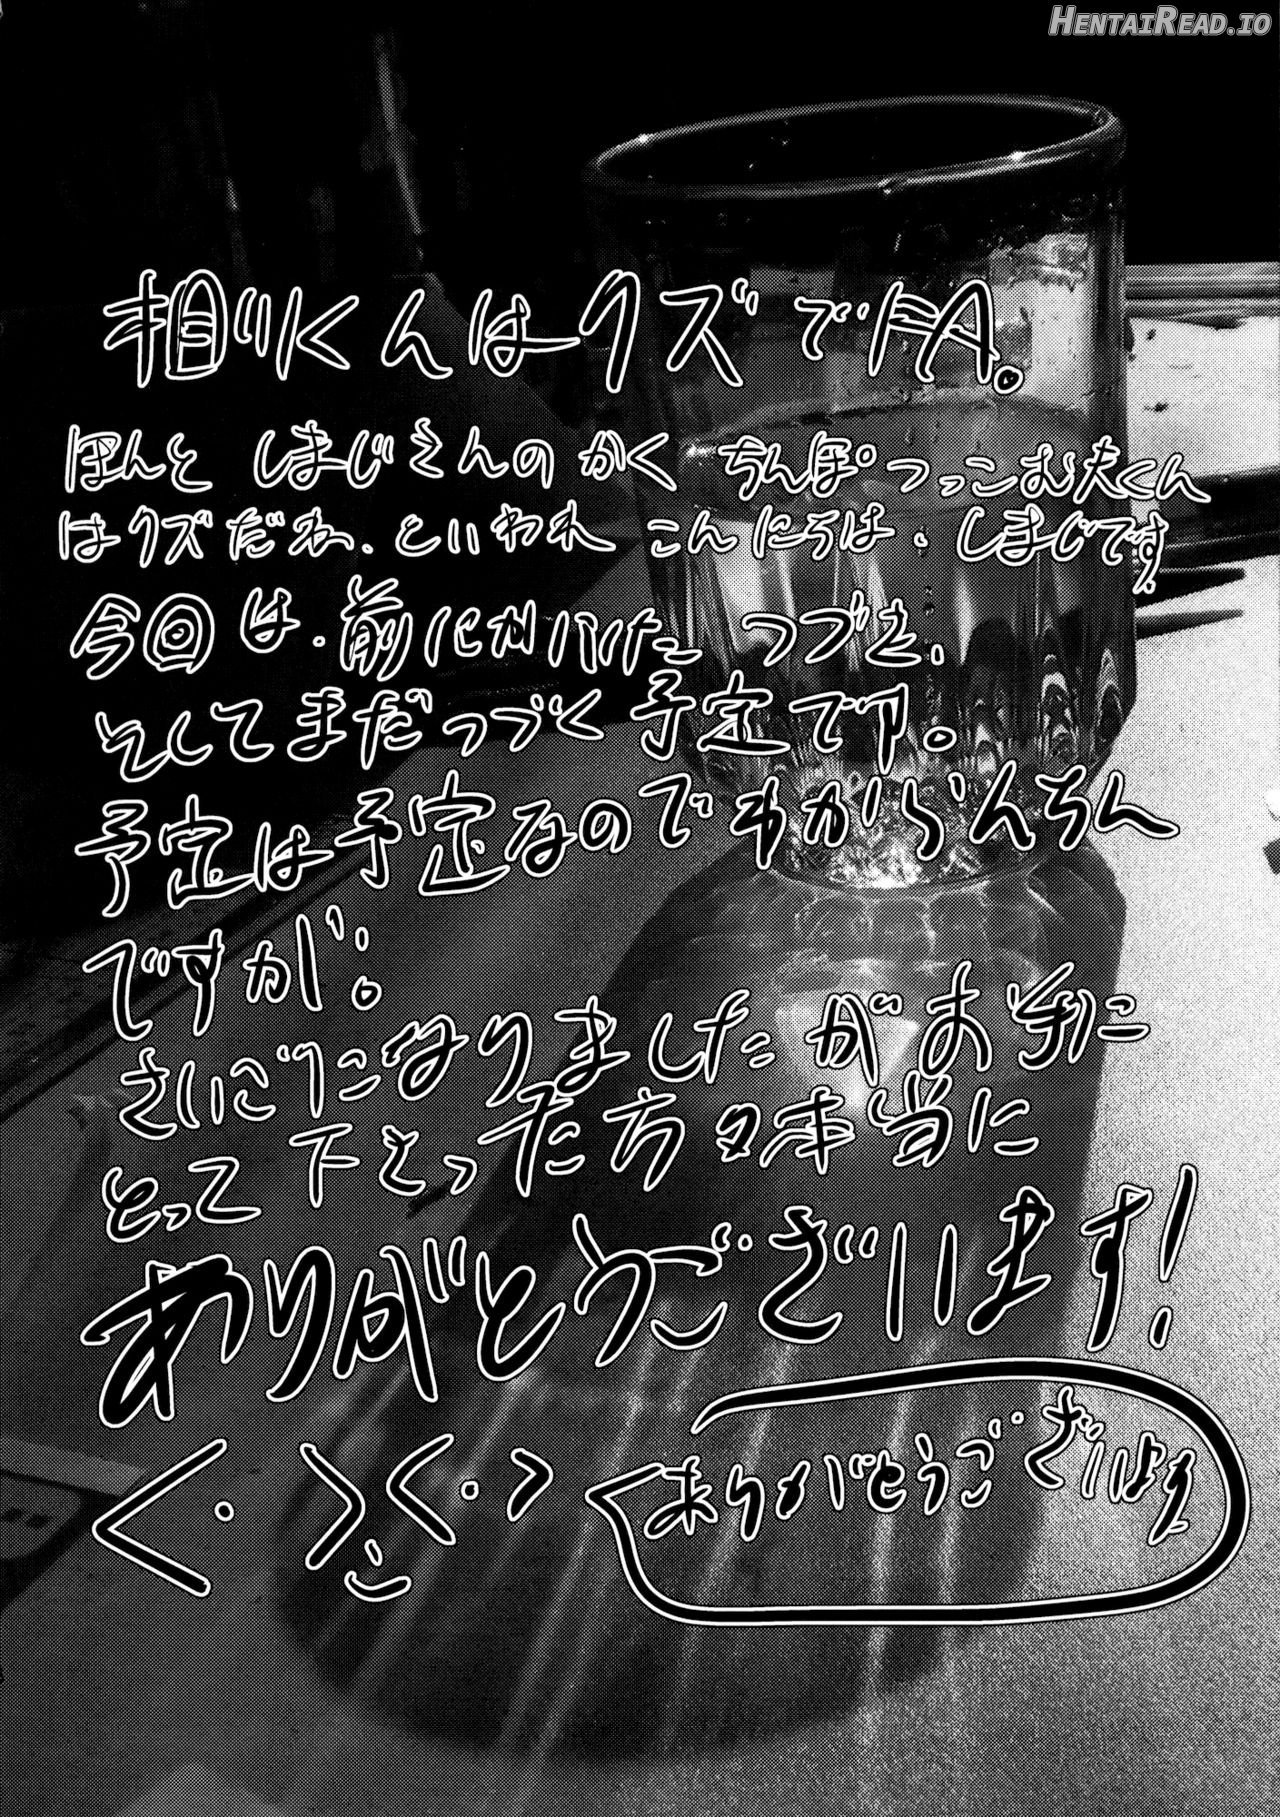 HentaiRead.io
相川くんはクズでFA。
ほんと しまじさんのかく ちんぽつっこむ夫くん
はクズだね、といわれ こんにちは、しまじです。
今回は、前にかいた つづき、
そしてまだつづく予定です。
予定は予定なのでわからんちん
ですが!。
さいごになりましたがお手に
とって下さった方々本当に
ありがとうございます!
ありがとうございます